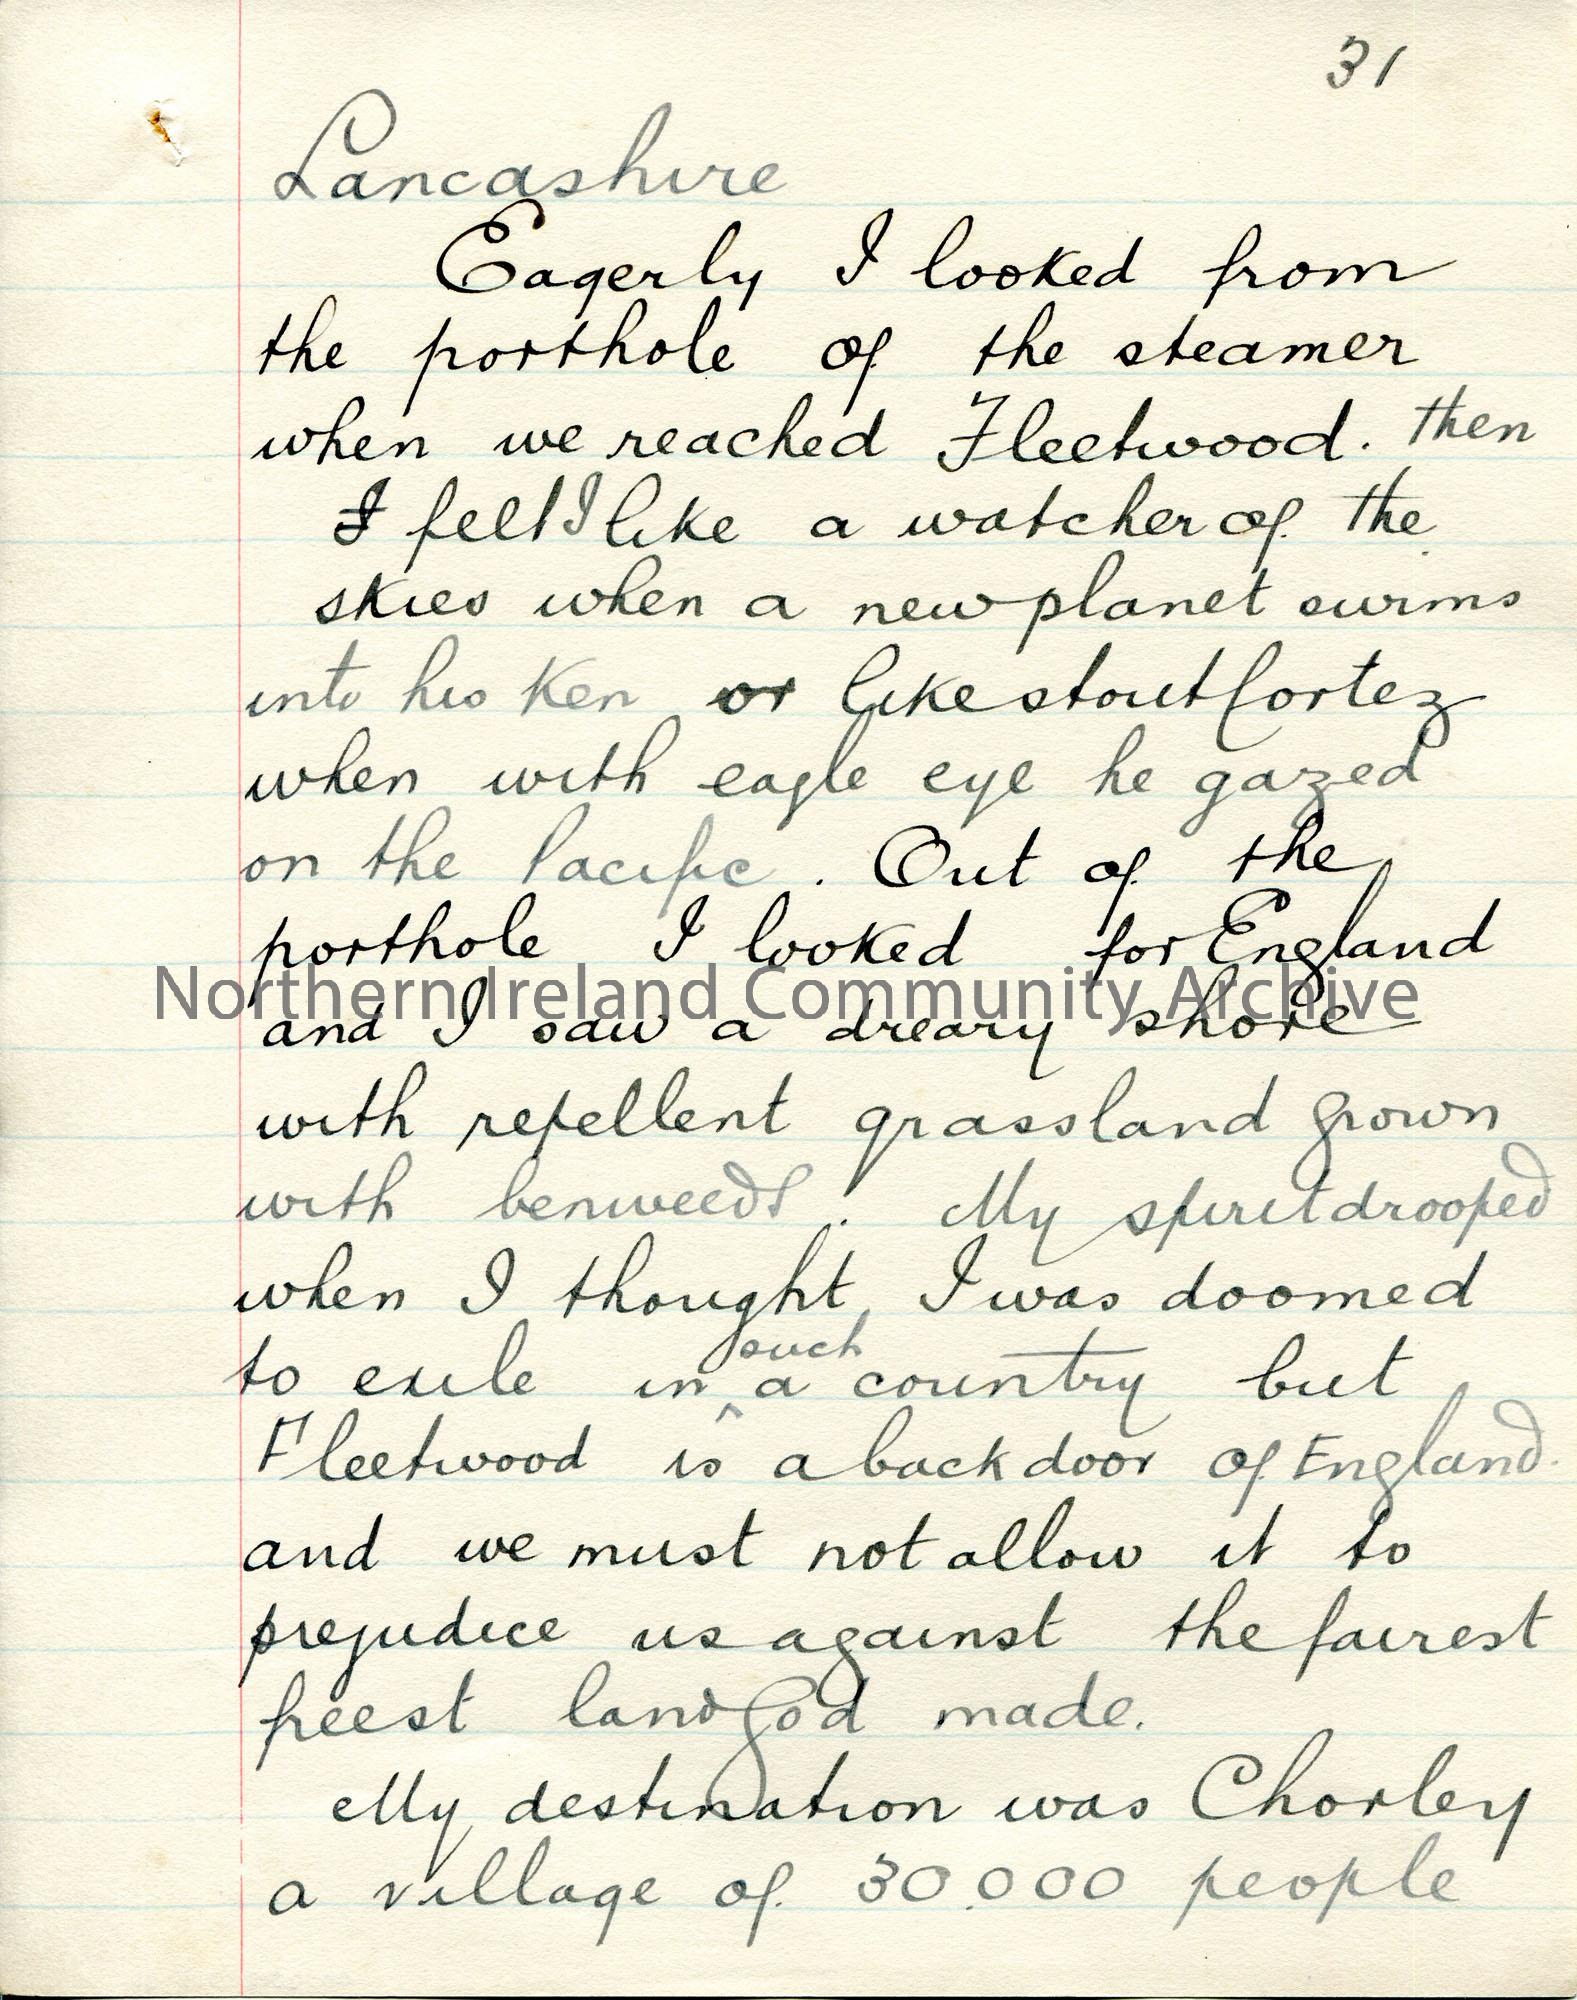 31
Lancashire
Eagerly I looked from
the porthole of the steamer
when we reached Fleetwood. then
I felt I like a watcher of the
skies when a new planet swims
into his ken or like stout Cortez
when with eagle eye he gazed
on the Pacific. Out of the
porthole I looked for England
Northern Ireland Community Archive
and I saw a dreary shore
with repellent grassland grown
with benweeds. My spirit drooped
when I thought I was doomed
such
to exile in a country but
Fleetwood is a back door of England.
and we must not allow it to
prejudice us against the fairest
freest land God made.
My destination was Chorley
a village of 30.000 people